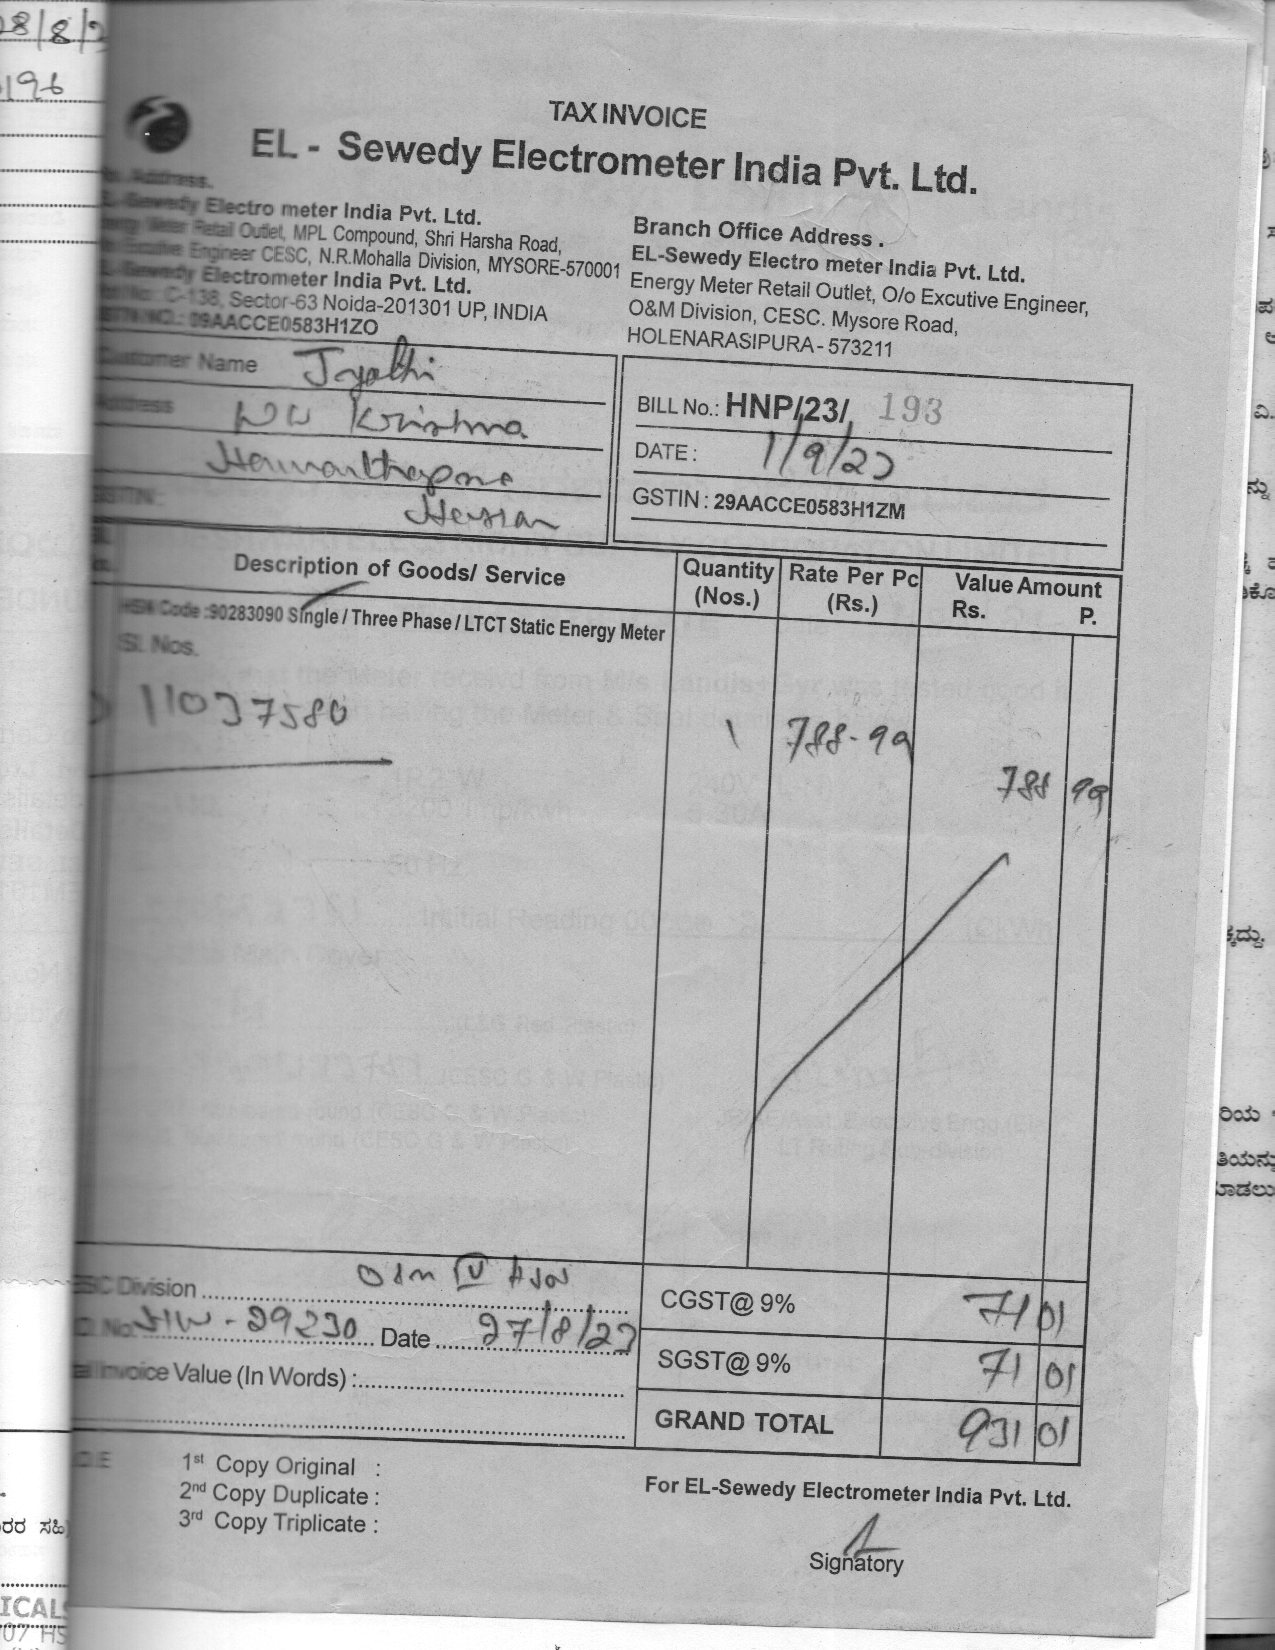 28/8/2
196
TAX INVOICE
EL - Sewedy Electrometer India Pvt. Ltd.
Address.
EL-Sewedy Electro meter India Pvt. Ltd.
Energy Meter Retail Outlet, MPL Compound, Shri Harsha Road,
Executive Engineer CESC, N.R.Mohalla Division, MYSORE-570001
EL-Sewedy Electrometer India Pvt. Ltd.
C-138, Sector-63 Noida-201301 UP, INDIA
09AACCE0583H1ZO
Branch Office Address .
EL-Sewedy Electro meter India Pvt. Ltd.
Energy Meter Retail Outlet, O/o Excutive Engineer,
O&M Division, CESC. Mysore Road,
HOLENARASIPURA - 573211
Customer Name Jyothi
Address W/o Krishna
GSTIN : Hassan
BILL No.: HNP/23/ 193
DATE : 1/9/23
GSTIN : 29AACCE0583H1ZM
Description of Goods/ Service
Quantity (Nos.)
Rate Per Pc (Rs.)
Value Amount
Rs. P.
HSN Code :90283090 Single / Three Phase / LTCT Static Energy Meter
Sl. Nos.
11037580
1 788-99 788 99
CESC Division O&M IV HSN
29230 Date 27/8/23
Invoice Value (In Words) :
CGST@ 9% 71 01
SGST@ 9% 71 01
GRAND TOTAL 931 01
1st Copy Original :
2nd Copy Duplicate :
3rd Copy Triplicate :
For EL-Sewedy Electrometer India Pvt. Ltd.
Signatory